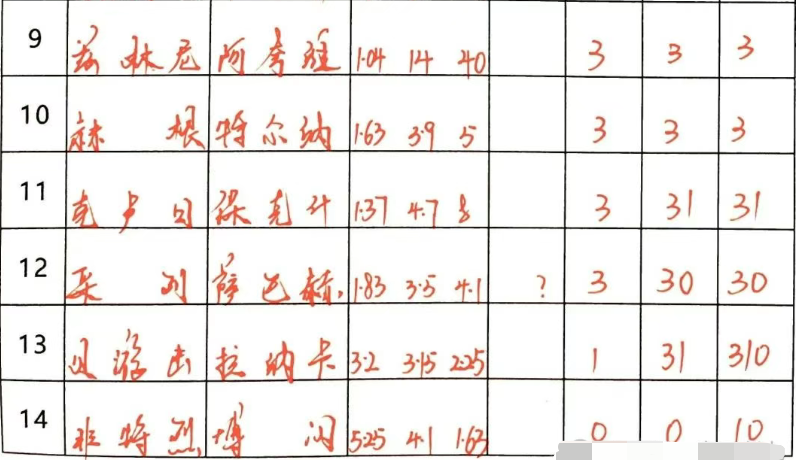 9 兹林尼 阿奎维 1.04 14 40 3 3 3
10 赫根 特尔纳 1.63 3.9 5 3 3 3
11 克卢日 保克什 1.37 4.7 8 3 31 31
12 采列 萨巴赫 1.83 3.5 4.1 ? 3 30 30
13 贝游击 拉纳卡 3.2 3.15 2.25 1 31 310
14 非特烈 博闪 5.25 4.1 1.63 0 0 10